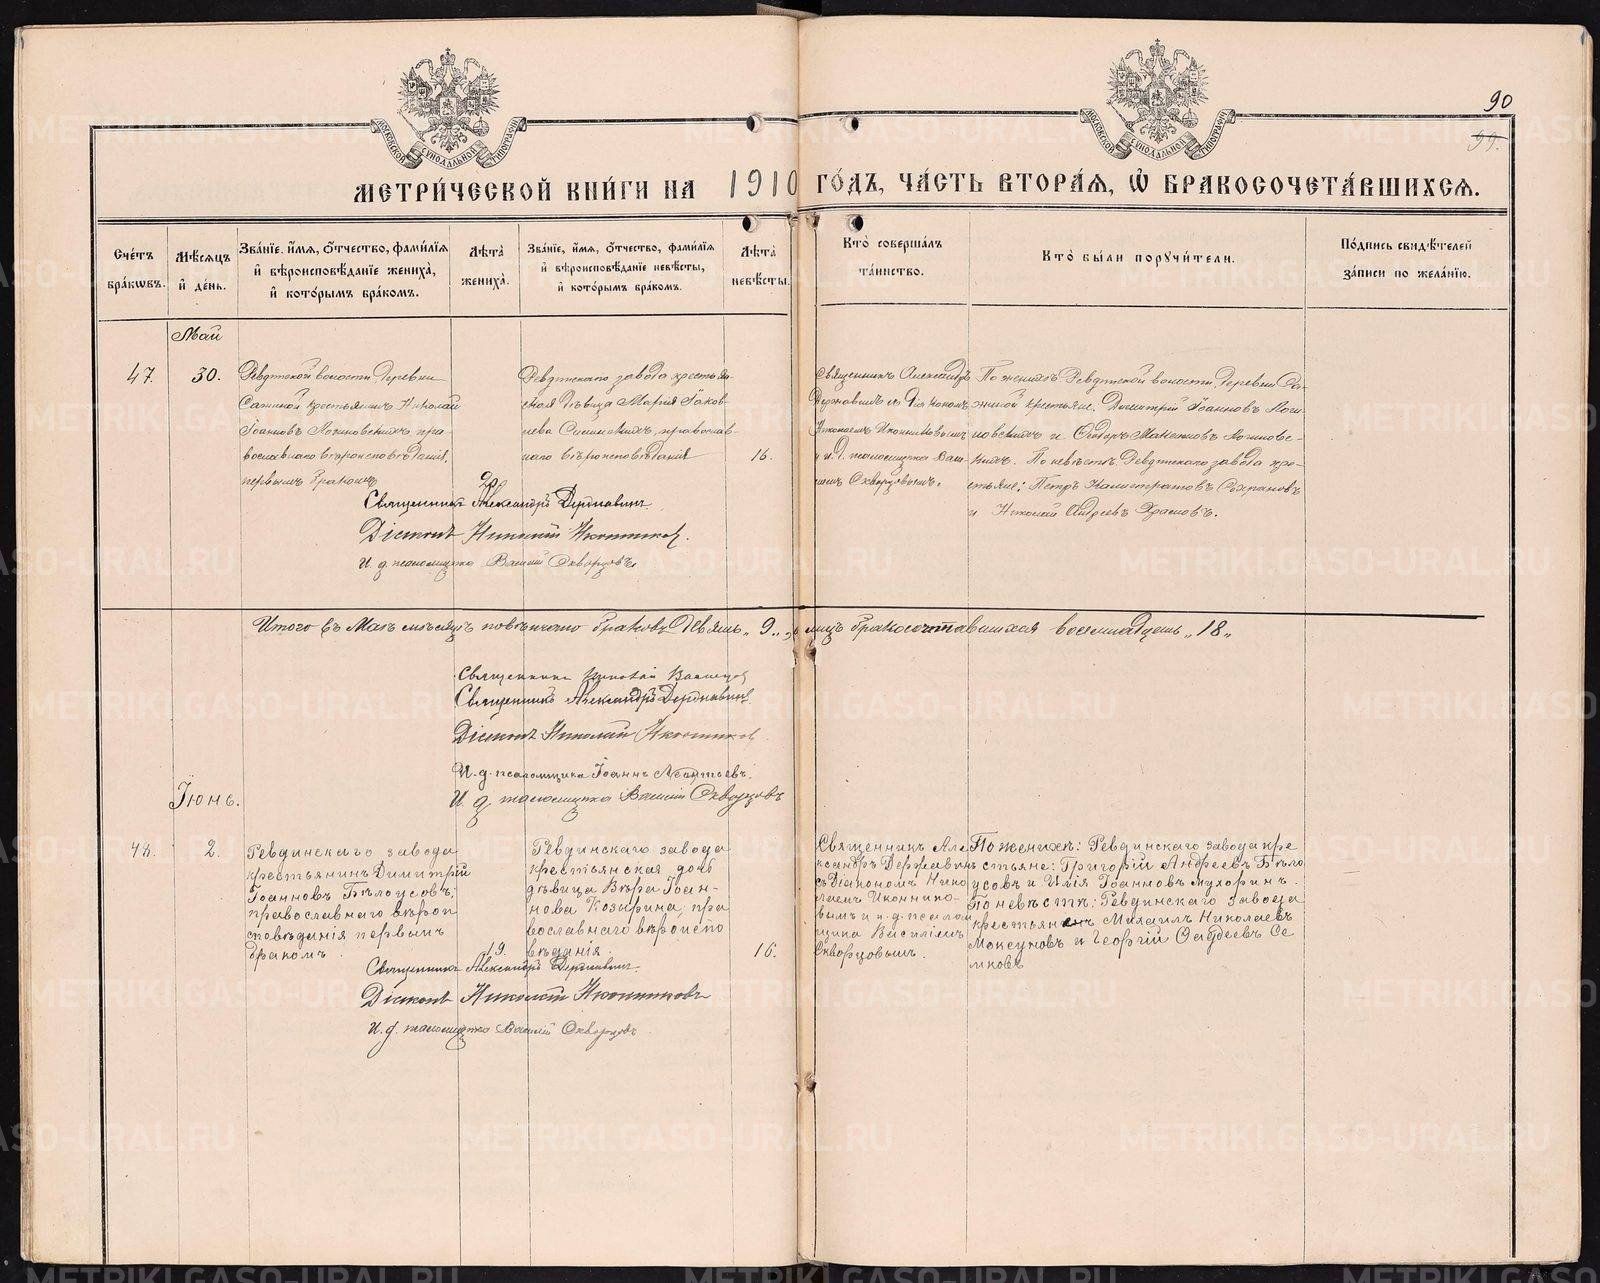 90
99.
МОСКОВСКОЙ СѴНОДАЛЬНОЙ ТИПОГРАФІИ
МОСКОВСКОЙ СѴНОДАЛЬНОЙ ТИПОГРАФІИ
МЕТРИ́ЧЕСКОЙ КНИ́ГИ НА 1910 ГО́ДЪ, ЧА́СТЬ ВТОРА́Я, Ѡ҆ БРАКОСОЧЕТА́ВШИХСЯ.
Сче́тъ бра́кѡвъ.
Мѣ́сяцъ и҆ де́нь.
Зва́нїе, и҆́мя, ѻ҆́тчество, фами́лїя и҆ вѣроисповѣ́данїе жениха̀, и҆ кото́рымъ бра́комъ.
Лѣта̀ жениха̀.
Зва́нїе, и҆́мя, ѻ҆́тчество, фами́лїя и҆ вѣроисповѣ́данїе невѣ́сты, и҆ кото́рымъ бра́комъ.
Лѣта̀ невѣ́сты.
Кто̀ соверша́лъ та́инство.
Кто̀ бы́ли поручи́тели.
По́дпись свидѣ́телей за́писи по жела́нїю.
Май
47.
30.
Ревдинской волости деревни
крестьянинъ Николай
Іоанновъ
православнаго вѣроисповѣданія,
первымъ бракомъ
Ревдинскаго завода крестьян-
ская дѣвица Марія Яков-
лева православ-
наго вѣроисповѣданія
16.
Священникъ Александръ
Державинъ съ діакономъ
Николаемъ Иконниковымъ
и и. д. псаломщика Васи-
ліемъ Скворцовымъ.
По женихѣ: Ревдинской волости, деревни
крестьяне: Димитрій Іоанновъ
и Ѳеодоръ
По невѣстѣ: Ревдинскаго завода кре-
стьяне: Петръ Калистратовъ
и Николай Андреевъ Храмовъ.
Священникъ Александръ Державинъ
Діаконъ Николай Иконниковъ.
И. д. псаломщика Василій Скворцовъ
Итого въ Маѣ мѣсяцѣ повѣнчано браковъ девять „9„, лицъ бракосочетавшихся восемнадцать „18„
Священникъ Николай
Священникъ Александръ Державинъ
Діаконъ Николай Иконниковъ
И. д. псаломщика Іоаннъ Леонтьевъ.
И. д. псаломщика Василій Скворцовъ
Іюнь.
48.
2.
Ревдинскаго завода
крестьянинъ Димитрій
Іоанновъ Бѣлоусовъ,
православнаго вѣрои
сповѣданія первымъ
бракомъ
19.
Ревдинскаго завода
крестьянская дочь
дѣвица Вѣра Іоан-
нова Козырина, пра
вославнаго вѣроиспо
вѣданія
16.
Священникъ Але
ксандръ Державинъ
съ діакономъ Нико
лаемъ Иконнико-
вымъ и и. д. псалом
щика Василіемъ
Скворцовымъ.
По женихѣ: Ревдинскаго завода кре
стьяне: Григорій Андреевъ Бѣло
усовъ и Илія Іоанновъ Мухоринъ.
По невѣстѣ: Ревдинскаго завода
крестьяне Михаилъ Николаевъ
Моксуновъ и Георгій Ѳаддеевъ Се
мковъ
Священникъ Александръ Державинъ.
Діаконъ Николай Иконниковъ
И. д. псаломщика Василій Скворцовъ.
METRIKI.GASO-URAL.RU